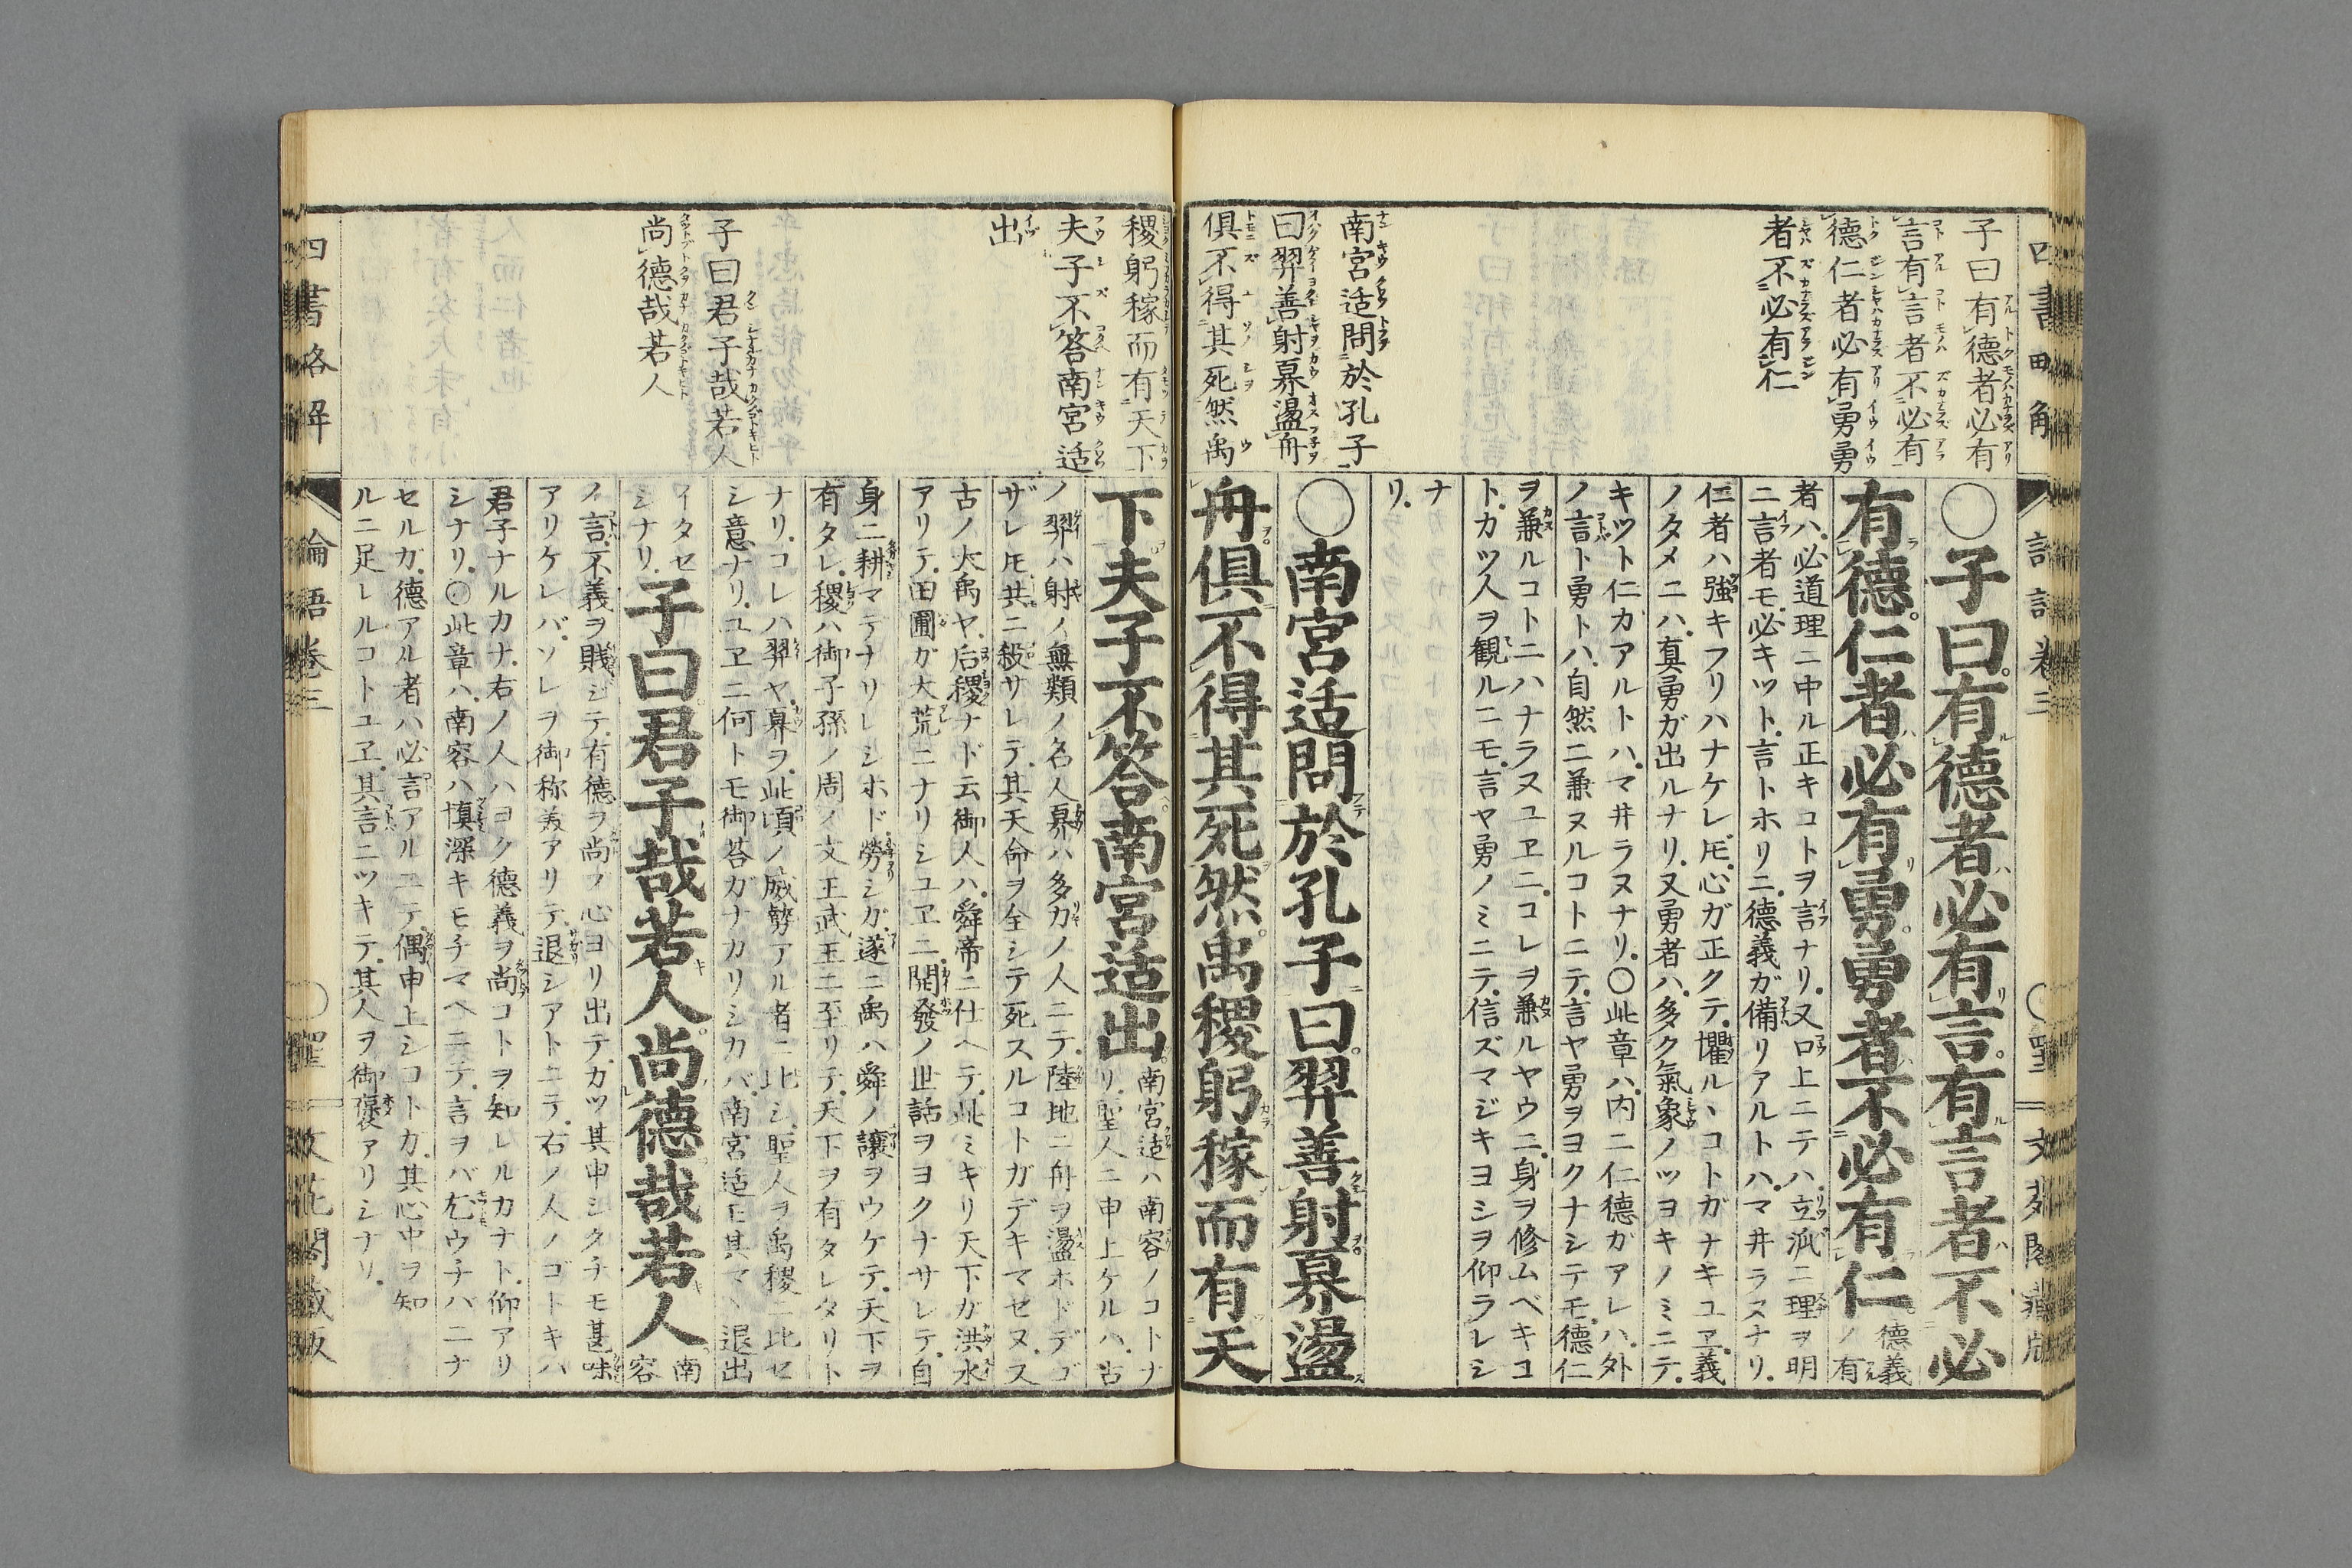 子曰有德者必有
言有言者不必有
德仁者必有勇勇
者不必有仁
南宮适問於孔子
曰羿善射奡盪舟
俱不得其死然禹
〇子曰有德者必有言有言者不必
有德仁者必有勇勇者不必有仁
德義
ノ有
者ハ必道理ニ中ル正キコトヲ言ナリ又口上ニテハ立派ニ理ヲ明
ニ言者モ必キツト言トホリニ德義ガ備リアルトハマ井ラヌナリ
仁者ハ強キフリハナケレ𪜈心ガ正クテ懼ルヽコトガナキユヱ義
ノタメニハ真勇ガ出ルナリ又勇者ハ多ク氣象ノツヨキノミニテ
キツト仁カアルトハマ井ラヌナリ〇此章ハ内ニ仁德ガアレハ外
ノ言ト勇トハ自然ニ兼ヌルコトニテ言ヤ勇ヲヨクナシテモ德仁
ヲ兼ルコトニハナラヌユヱニコレヲ兼ルヤウニ身ヲ修ムベキコ
トカツ人ヲ観ルニモ言ヤ勇ノミニテ信ズマジキヨシヲ仰ラレシ
ナ
リ
〇南宮适問於孔子曰羿善射奡盪
舟俱不得其死然禹稷躬稼而有天
稷躬稼而有天下
夫子不答南宮适
出
子曰君子哉若人
尚德哉若人
下夫子不答南宮适出
南宮适ハ南容ノコトナ
リ聖人ニ申上ケルハ古
ノ羿ハ射ノ無類ノ名人奡ハ多力ノ人ニテ陸地ニ舟ヲ盪ホドデゴ
ザレ𪜈共ニ殺サレテ其天命ヲ全シテ死スルコトガデキマゼヌス
古ノ大禹ヤ后稷ナド云御人ハ舜帝ニ仕ヘテ此ミギリ天下ガ洪水
アリテ田圃ガ大荒ニナリシユヱニ開發ノ世話ヲヨクナサレテ自
身ニ耕マデナリレシホド勞シガ遂ニ禹ハ舜ノ譲ヲウケテ天下ヲ
有タレ稷ハ御子孫ノ周ノ文王武王ニ至リテ天下ヲ有タレタリト
ナリコレハ羿ヤ奡ヲ此頃ノ威勢アル者ニ比シ聖人ヲ禹稷ニ比セ
シ意ナリユヱニ何トモ御答ガナカリシカバ南宮适モ其マヽ退出
イタセ
シナリ
子曰君子哉若人尚德哉若人
南
容
ノ言不義ヲ賎ジテ有德ヲ尚ブ心ヨリ出テカツ其申シクチモ甚味
アリケレバソレヲ御称美アリテ退シアトニテ右ノ人ノゴトキハ
君子ナルカナ右ノ人ハヨク德義ヲ尚コトヲ知レルカナト仰アリ
シナリ〇此章ハ南容ハ慎深キモチマヘニテ言ヲバ尤ウチバニナ
セルガ德アル者ハ必言アルニテ偶申上シコトカ其心中ヲ知
ルニ足レルコトユヱ其言ニツキテ其人ヲ御褒アリシナリ
四書略解
論語卷三
文花閣藏版